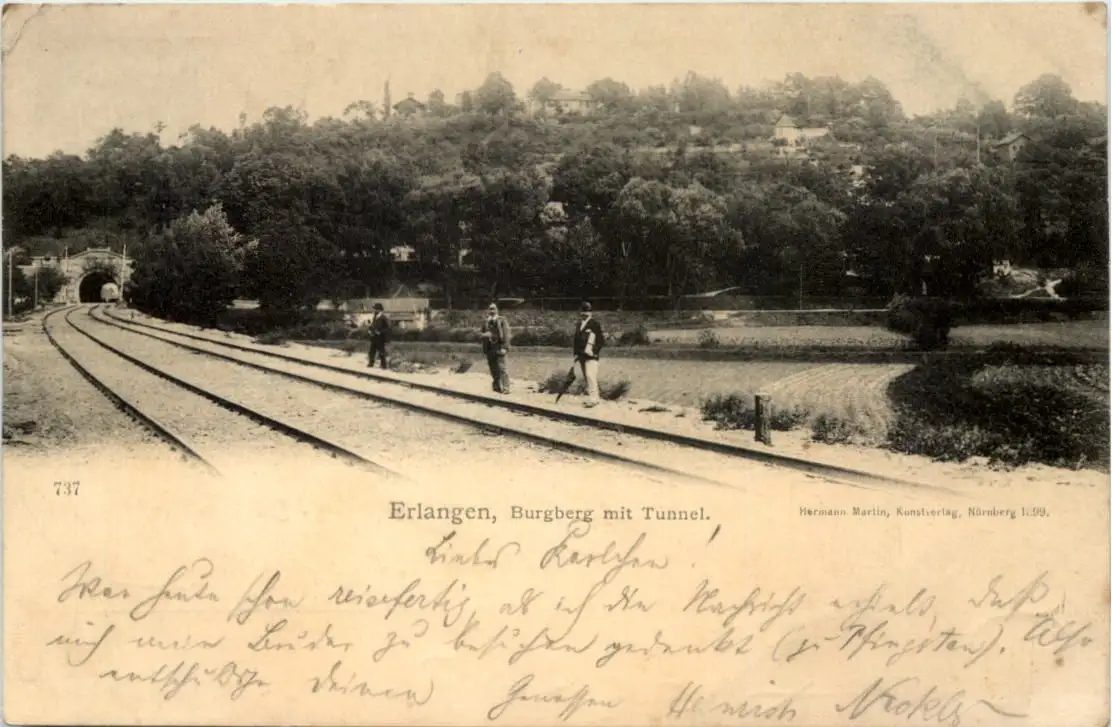 737
Erlangen, Burgberg mit Tunnel.
Hermann Martin, Kunstverlag, Nürnberg 1899.
Liebes Karlchen!
War heute schon reisefertig, als ich die Nachricht erhielt, daß
mich mein Bruder zu besuchen gedenkt (zu Pfingsten). Also
entschuldige Deinen Genossen Heinrich